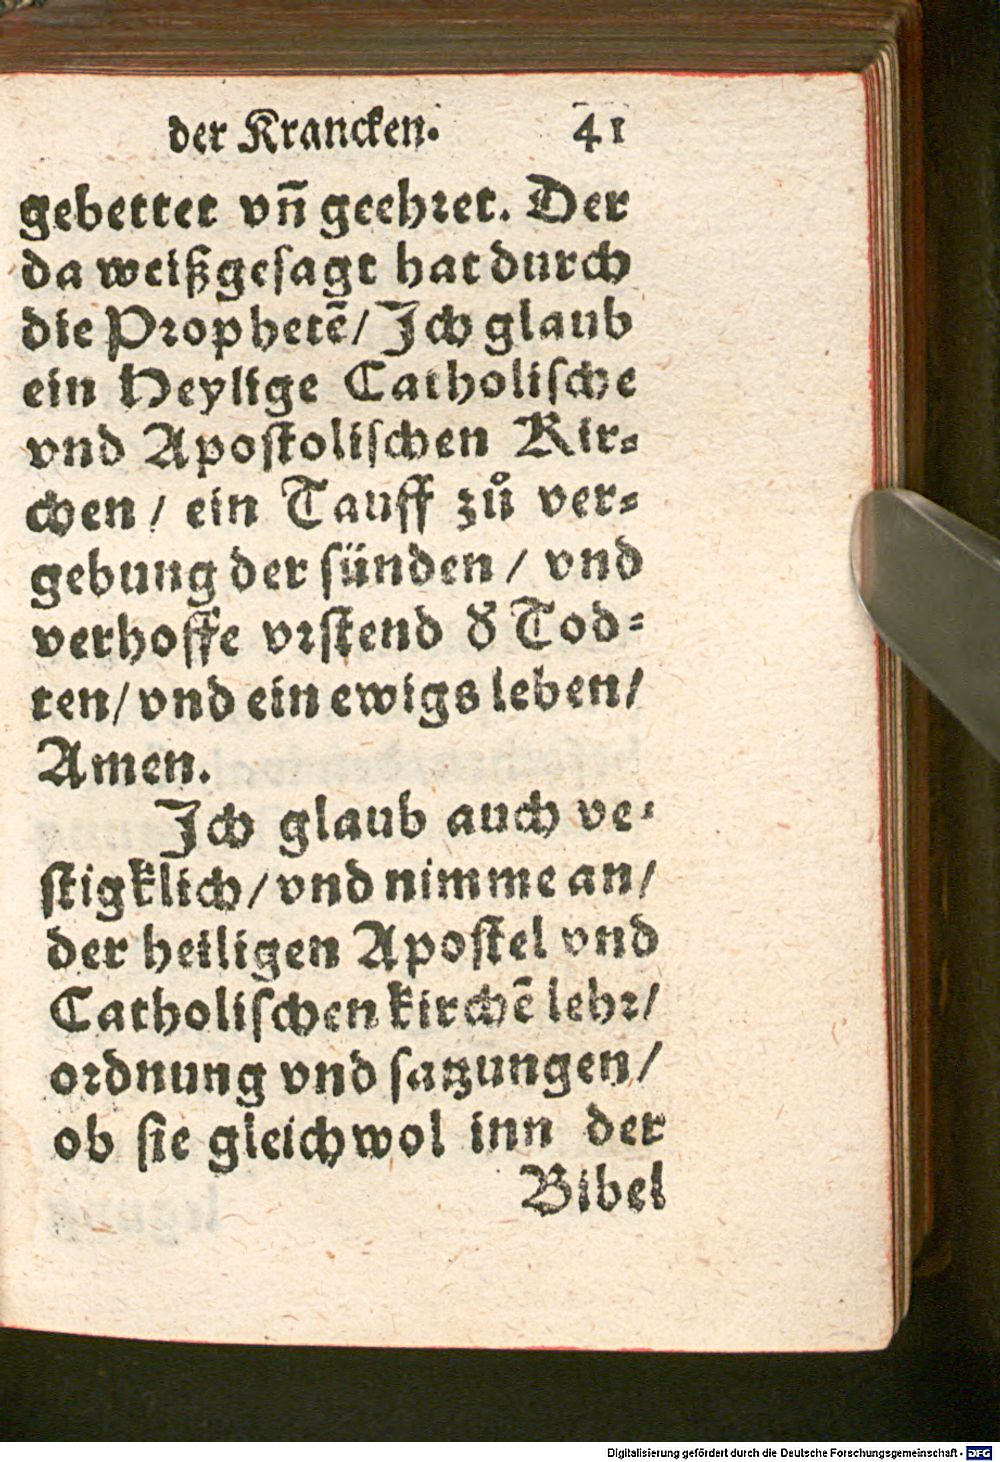 der Krancken. 41
gebettet vñ geehret. Der
da weißgesagt hat durch
die Prophetē/ Ich glaub
ein Heylige Catholische
vnd Apostolischen Kir-
chen / ein Tauff zů ver-
gebung der sünden / vnd
verhoffe vrstend d' Tod-
ten/ vnd ein ewigs leben/
Amen.
Ich glaub auch ve-
stigklich/ vnd nimme an/
der heiligen Apostel vnd
Catholischen kirchē lehr/
ordnung vnd satzungen/
ob sie gleichwol inn der
Bibel
Digitalisierung gefördert durch die Deutsche Forschungsgemeinschaft - DFG